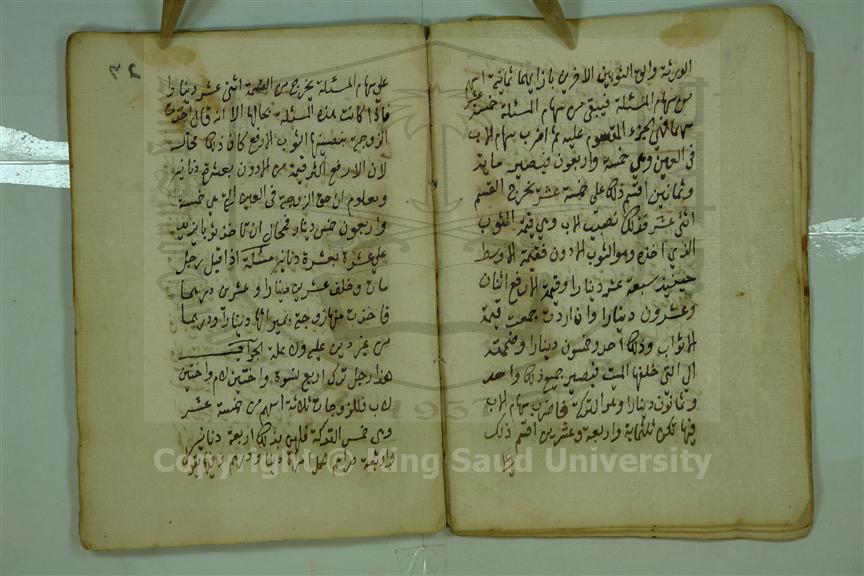 الورثة والق الثوبين الاخرين بازايهما ثمانية اسهم
من سهام المسئلة فيبقى من سهام المسئلة خمسة عشر
سهما فهي الجزء المقسوم عليه ثم اضرب سهام الاب
في العين وهي خمسة واربعون فيصير ماية
وثمانين اقسم ذلك على خمسة عشر يخرج القسم
اثنى عشر فذلك نصيب الاب وهي قيمة الثوب
الذي اخذه وهو الثوب الادون فقيمة الاوسط
حينيذ سبعة عشر دينارا وقيمة الارفع اثنان
وعشرون دينارا وان اردت جمعت قيمة
الاثواب وذلك احد وخمسون دينارا وضممته
الى التي خلفها الميت فيصير جميع ذلك واحد
وثمانون دينارا وهو التركة فاضرب سهام الاب
فيها تكن ثلثماية واربعة وعشرين اقسم ذلك
على
على سهام المسئلة يخرج من القسمة اثنى عشر دينارا
فاذا كانت هذه المسئلة بحالها الا انه قال اخذت
الزوجة بنصيبها الثوب الارفع كان ذلك محاله
لان الارفع اكثر قيمة من الادون بعشرة دنانير
ومعلوم ان حق الزوجة في العين التي هي خمسة
واربعون خمس دينار فمحال ان تاخذ ثوبا يزيد
على عشرة بعشرة دنانير مسئلة اذا قيل رجل
مات وخلف عشرين دينارا وعشرين درهما
فاخذت منها زوجة بميراثها دينارا ودرهما
من غير دين عليه ولا علة الجواب
هذا رجل ترك اربع نسوة واختين لام واختين
لاب فللزوجات ثلاثة اسهم من خمسة عشر
وهي خمس التركة فلهن بذلك اربعة دنانير
واربعة دراهم لكل امراة دينار ودرهم
Copyright © King Saud University
1957